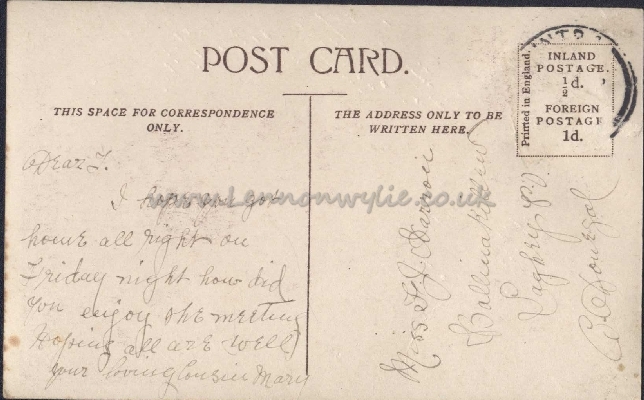 POST CARD.
THIS SPACE FOR CORRESPONDENCE
ONLY.
THE ADDRESS ONLY TO BE
WRITTEN HERE.
Printed in England.
INLAND
POSTAGE.
½d.
FOREIGN
POSTAGE
1d.
www.Lennonwylie.co.uk
Dear
I hope you got
home all right on
Friday night how did
you enjoy the meeting
Hoping all are well
your loving Cousin Mary
Miss
Laghey P.O.
Co Donegal